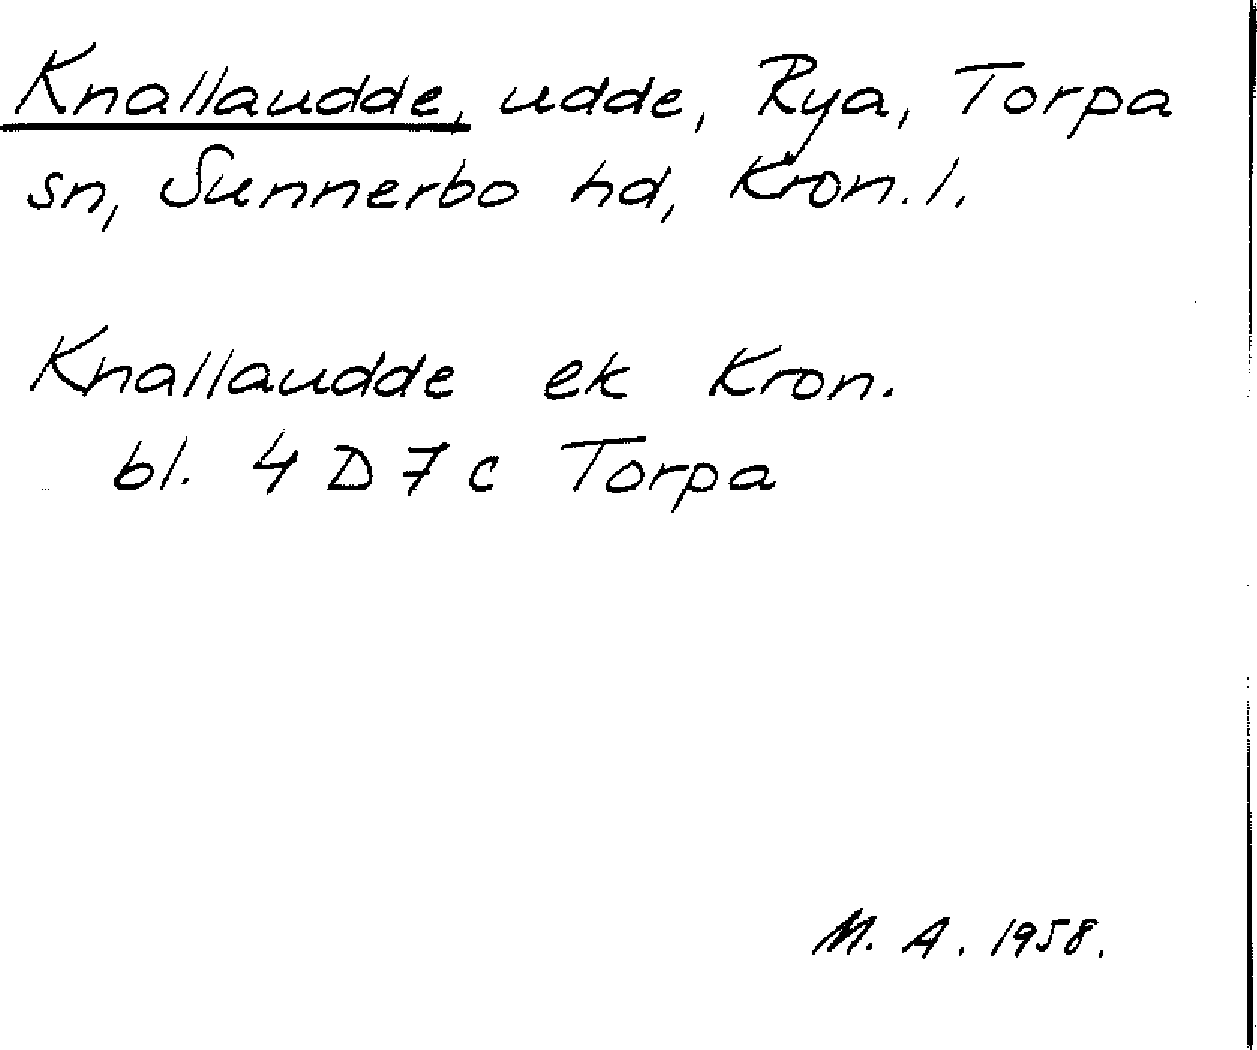 Knallaudde, udde, Rya, Torpa
sn, Sunnerbo hd, Kron. l.
Knallaudde ek Kron.
bl. 4 D 7 c Torpa
M. A. 1958.